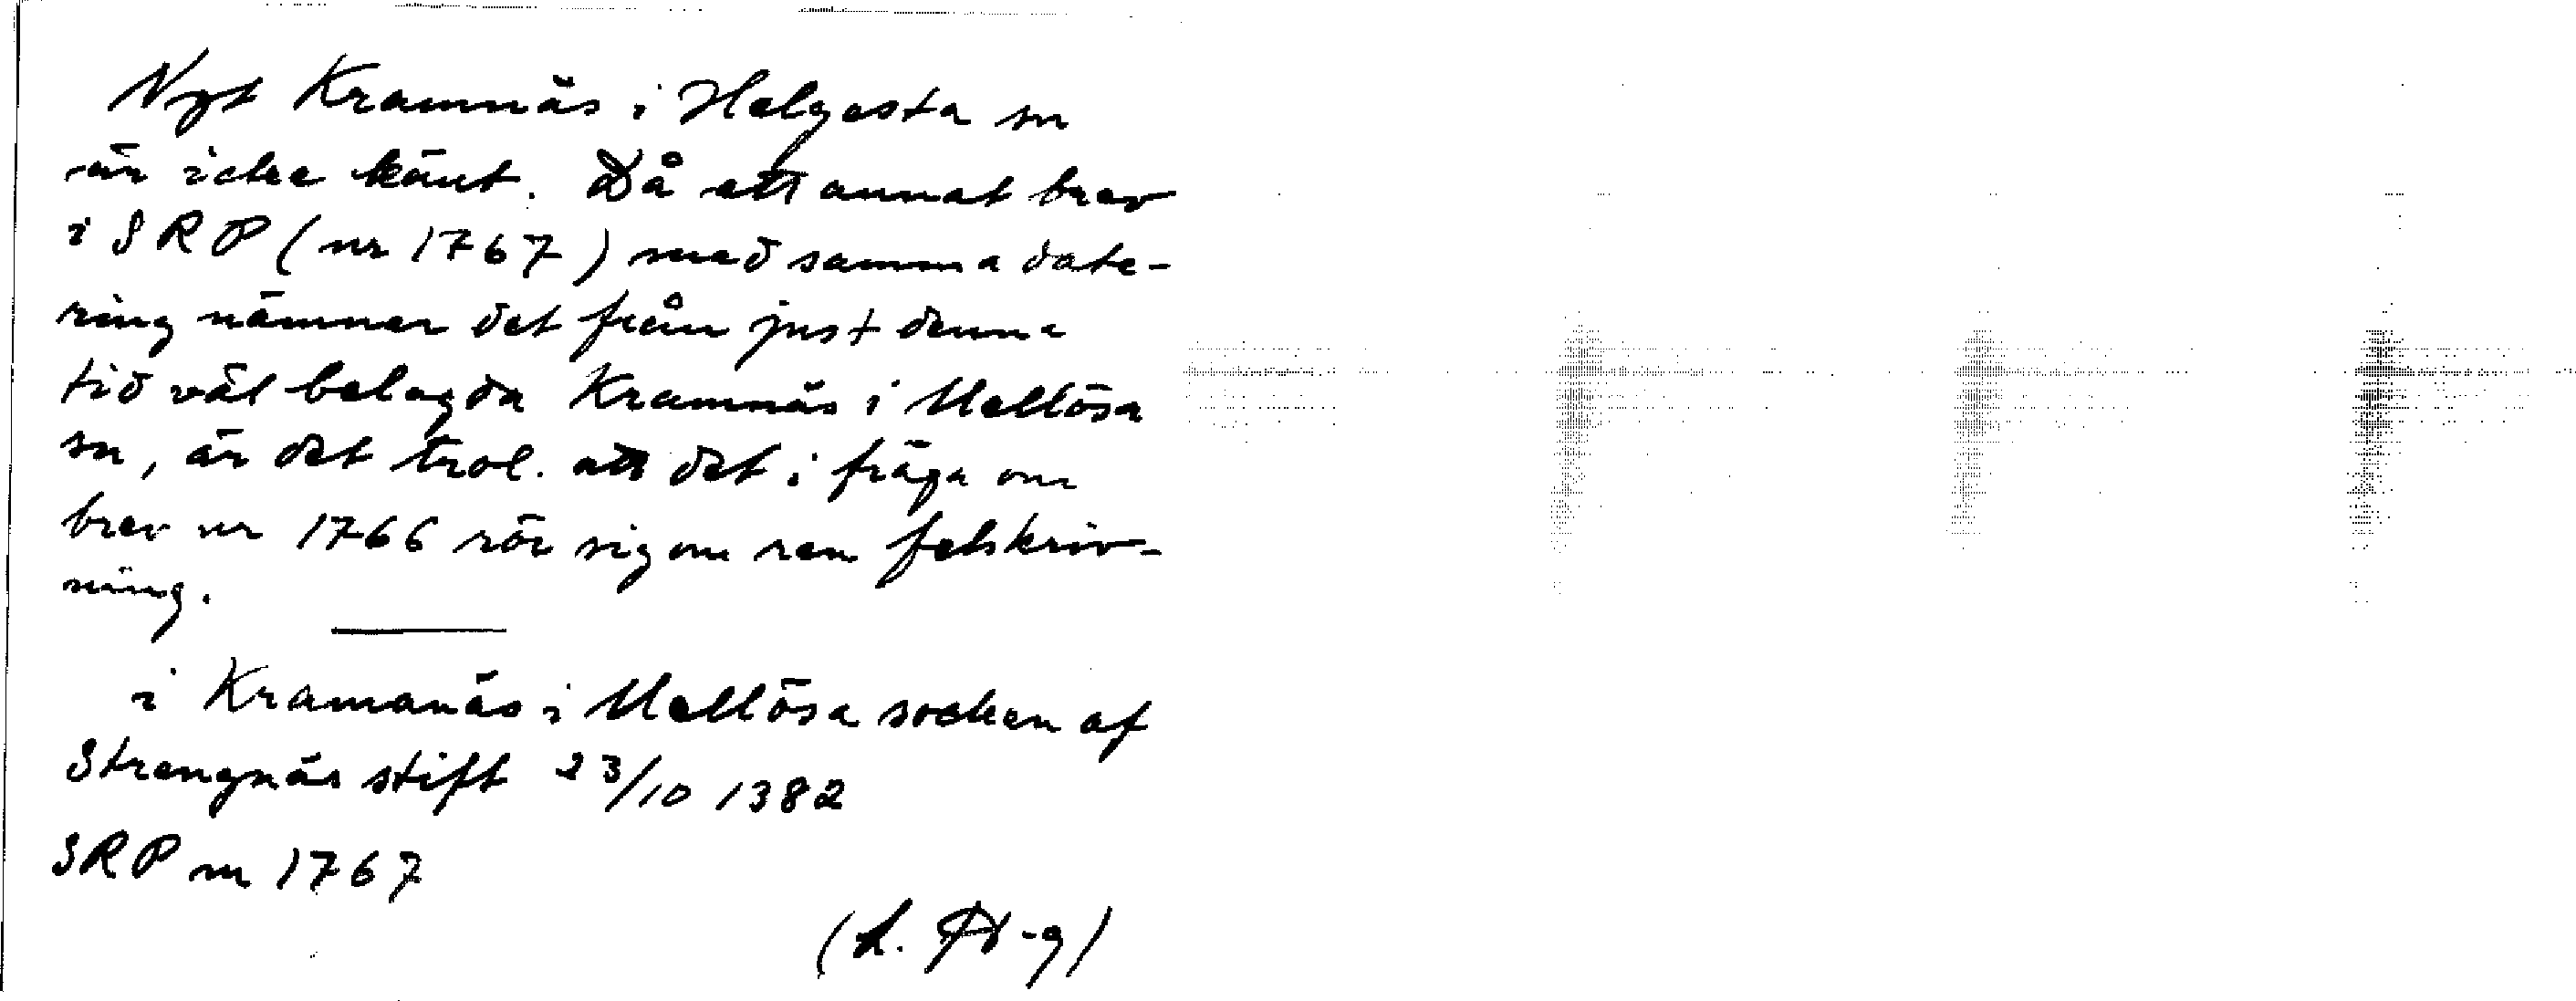 Ngt Kramnäs i Helgesta sn
är icke känt. Då ett annat brev
i SRP (nr 1767) med samma date-
ring nämner det från just denna
tid väl belagda Kramnäs i Mellösa
sn, är det trol. att det i fråga om
brev nr 1766 rör sig om ren felskriv-
ning.
i Kramanäs i Mellösa socken af
Strengnäs stift 23/10 1382
SRP nr 1767